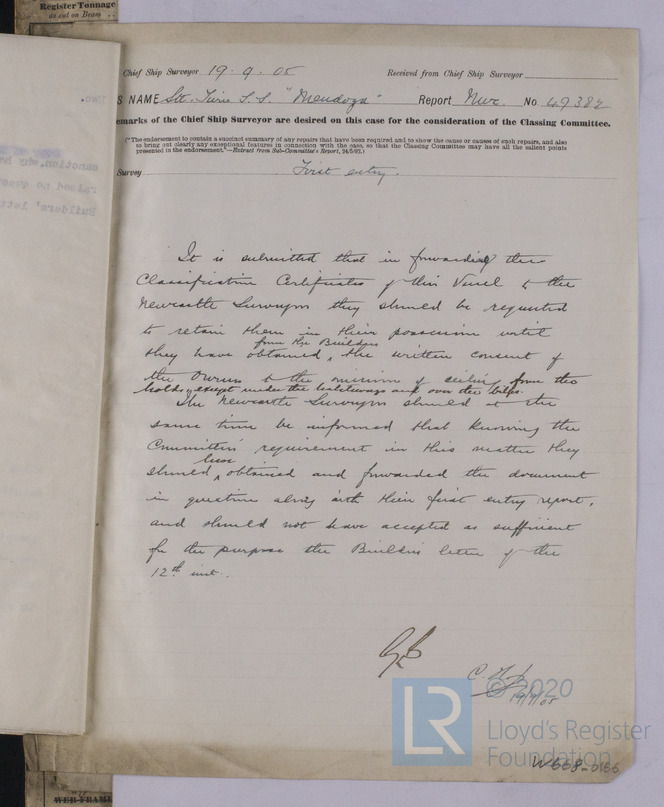 Register Tonnage
as cut on Beam
Chief Ship Surveyor 19.9.05 Received from Chief Ship Surveyor
S NAME Stl. Twin S.S. "Mendoza" Report Nwc. No 49382
emarks of the Chief Ship Surveyor are desired on this case for the consideration of the Classing Committee.
["The endorsement to contain a succinct summary of any repairs that have been required and to show the cause or causes of such repairs, and also
to bring out clearly any exceptional features in connection with the case, so that the Classing Committee may have all the salient points
presented in the endorsement."—Extract from Sub-Committee's Report, 24/5/92.]
Survey First entry.
It is submitted that in forwarding the
Classification Certificates of this Vessel to the
Newcastle Surveyors they should be requested
to retain them in their possession until
from the Builders
they have obtained, the written consent of
the Owners to the omission of ceiling from the
holds, except under the hatchways and over the bilges.
The Newcastle Surveyors should at the
same time be informed that knowing the
Committee's requirement in this matter they
have
should obtained and forwarded the document
in question along with their first entry report,
and should not have accepted as sufficient
for the purpose the Builders letter of the
12th inst.
19/9/05
© 2020
LR
Lloyd's Register
Foundation
W668-0156
WEB-FRAME